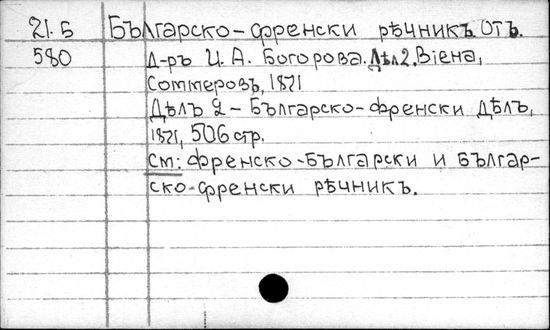 21. Б Българско-френски рѣчникъ отъ.
580 Д-ръ И. А. Богорова. Дѣл 2. Виена,
Соммеровъ, 1871
Дѣлъ 2 - Българско-френски дѣлъ,
1871, 506 стр.
См: френско-български и българ-
ско-френски рѣчникъ.